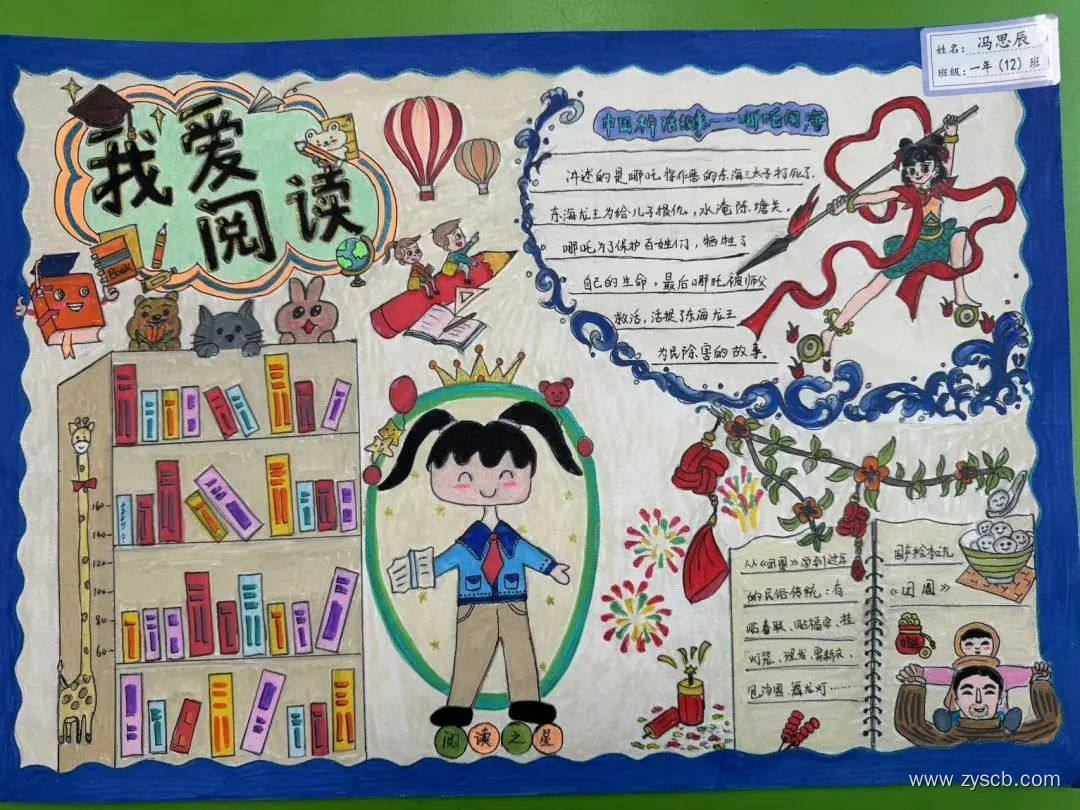 姓名：冯思辰
班级：一年（12）班
我爱阅读
中国神话故事---哪吒闹海
讲述的是哪吒将作恶的东海三太子打死了.
东海龙王为给儿子报仇，水淹陈塘关。
哪吒为了保护百姓们，牺牲了
自己的生命，最后哪吒被师父
救活，活捉了东海龙王
为民除害的故事。
Book
160
140
120
100
80
60
阅读之星
从《团圆》学到过年
的民俗传统：有
贴春联、贴福字、挂
灯笼、理发、穿新衣、
包汤圆.舞龙灯……
国产绘本
《团圆》
www.zyscb.com